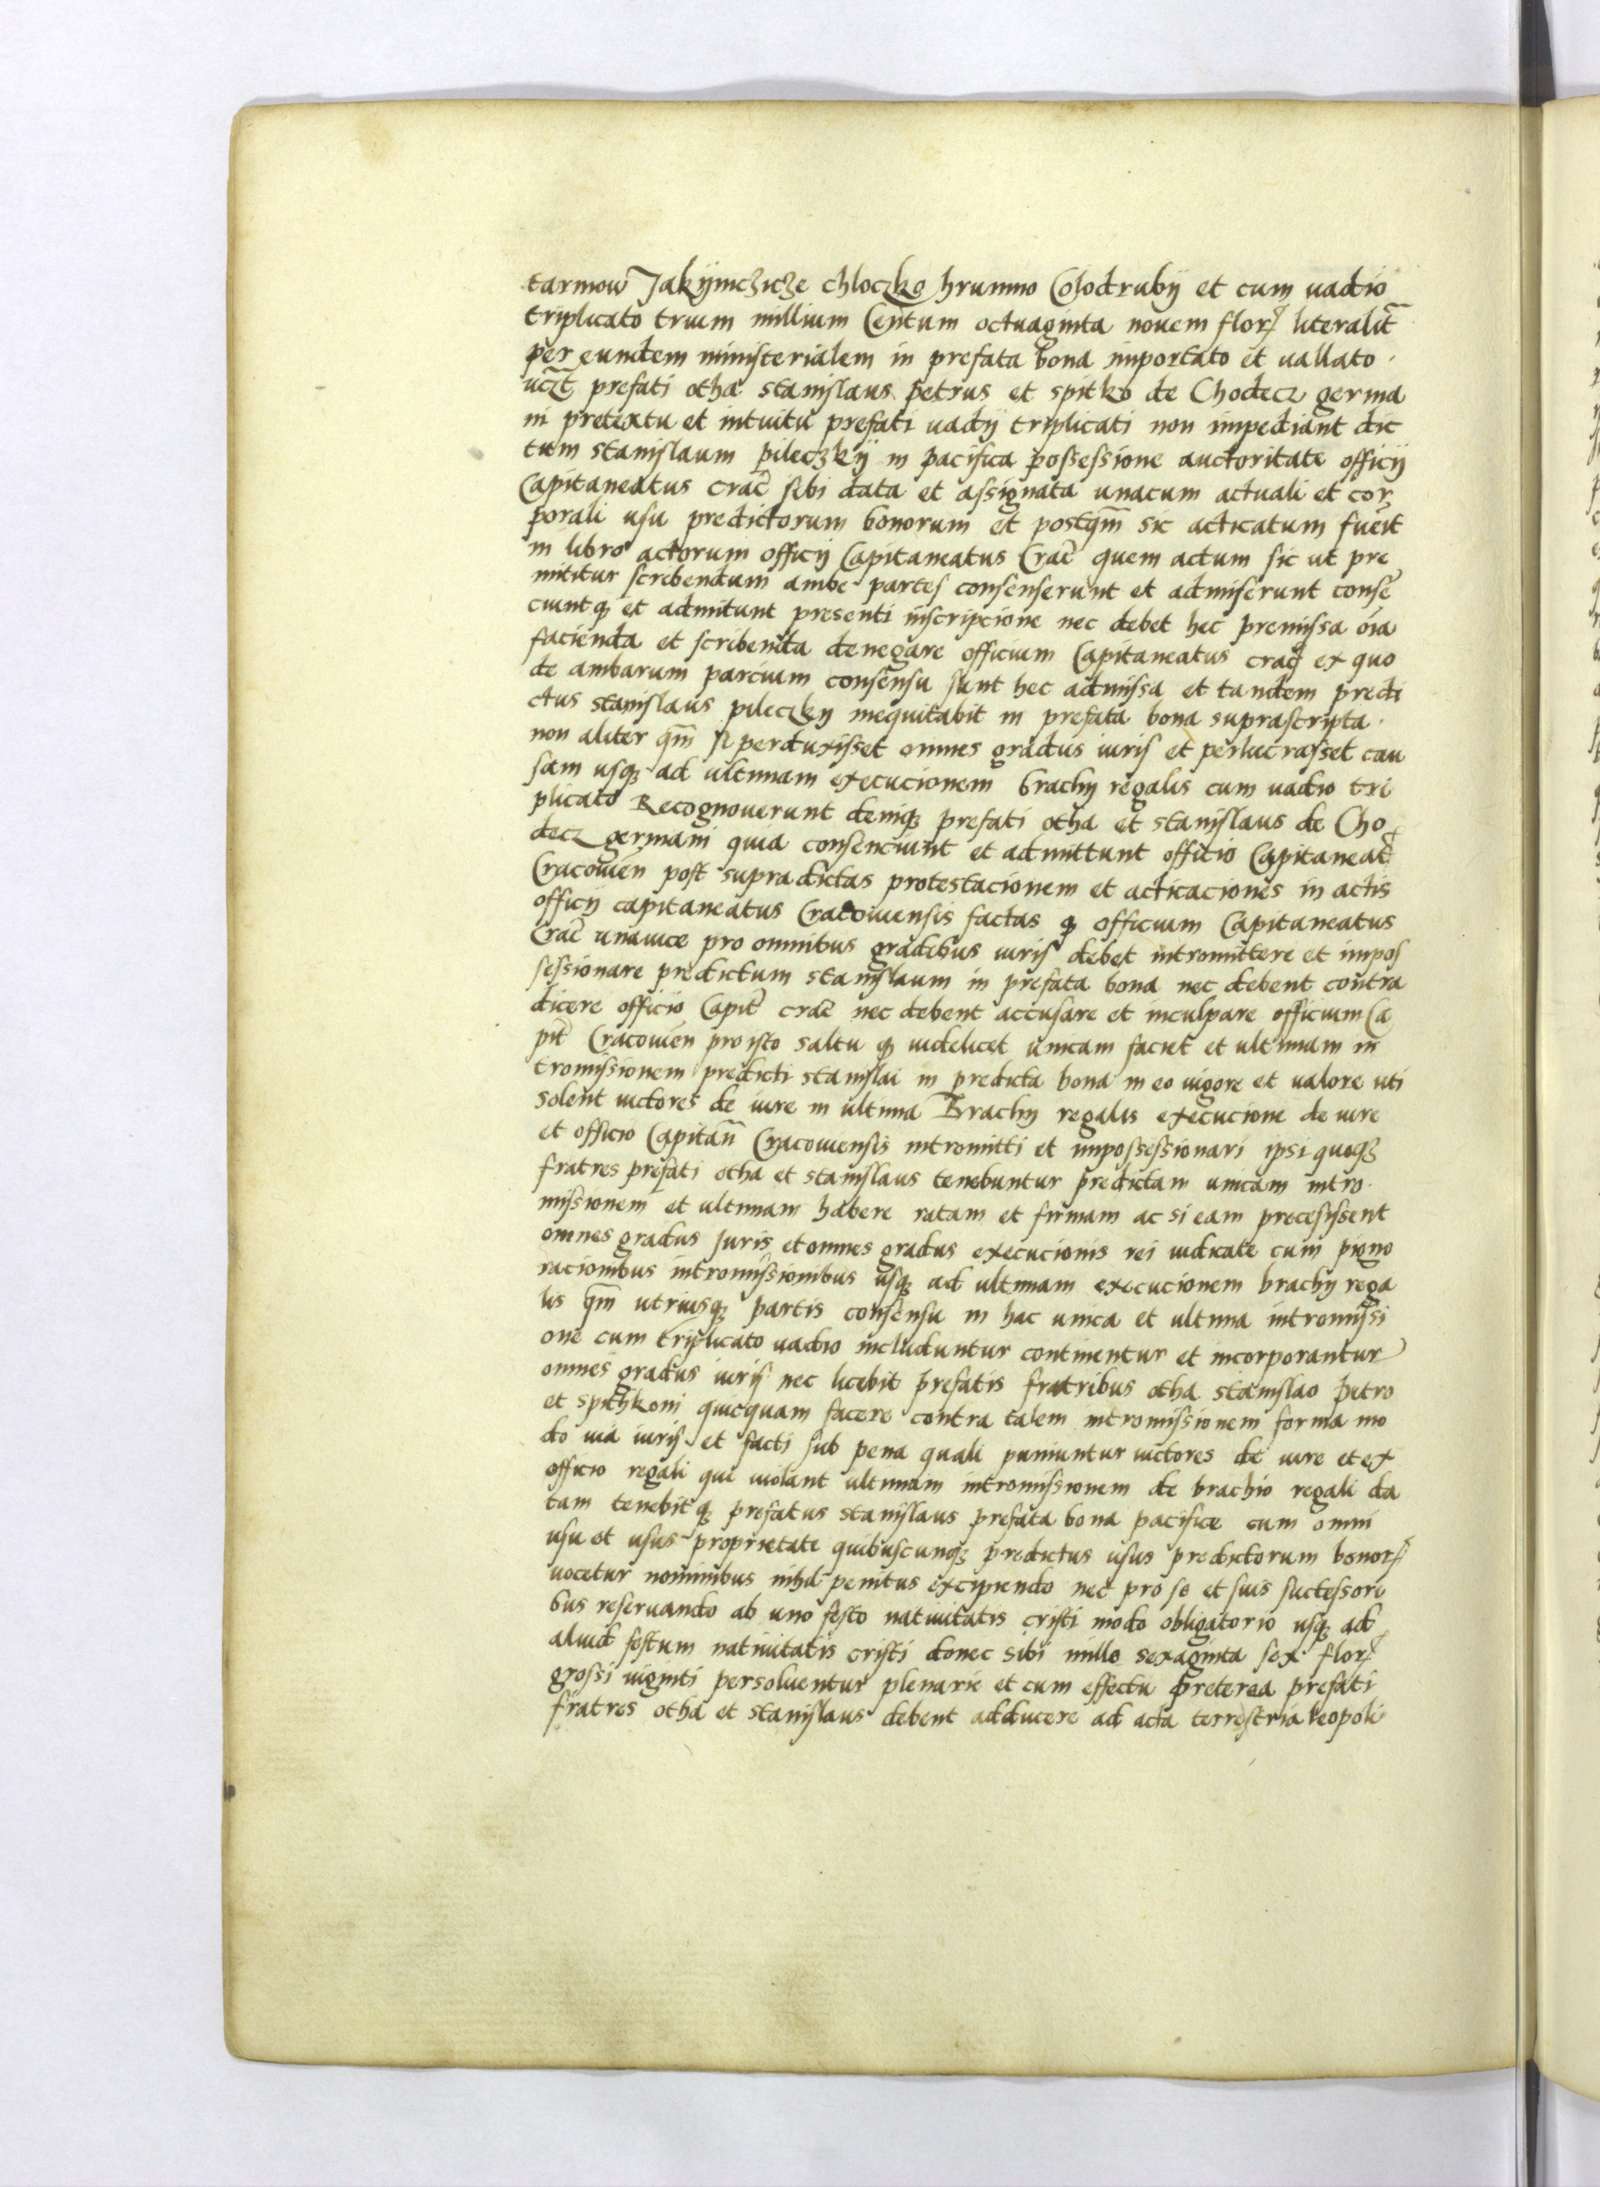 tarnow Jakijmczicze Chloczko hrumno Cohodrubij et cum uadio
triplicato trium millium Centum octuaginta nouem flor literalit̃
per eundem ministerialem in prefata bona importato et uallato ·
uczt̃ prefati otha stanislaus petrus et spitko de Chodecz germa
ni pretextu et intuitu prefati uadij triplicati non impediant dic
tum stanislaum pileczkij in pacifica possessione auctoritate officij
Capitaneatus crac̃ sibi data et assignata unacum actuali et cor
porali usu predictorum bonorum et postq̃m sic acticatum fuẽit
in libro actorum officij Capitaneatus Crac̃ quem actum sic ut pre
mititur scribendum ambe partes consenserunt et admiserunt conse
ciuntq et admitunt presenti inscripcione nec debet hec premissa õia
facienda et scribenda denegare officium Capitaneatus crac̃ ex quo
de ambarum parcium consensu sunt hec admissa et tandem predi
ctus stanislaus pileczkij inequitabit in prefata bona suprascripta ·
non aliter q̃m si perduxisset omnes gradus iuris et perlucrasset cau
sam usq ad ultimam execucionem brachij regalis cum uadio tri
plicato Recognouerunt deniq prefati otha et stanislaus de Cho
decz germani quia consenciunt et admittunt officio Capitaneat
Cracouieñ post supradictas protestacionem et acticaciones in actis
officij capitaneatus Cracouiensis factas q officium Capitaneatus
Crac̃ unauice pro omnibus gradibus iuris debet intromittere et impos
sessionare predictum stanislaum in prefata bona nec debent contra
dicere officio Capit̃ crac̃ nec debent accusare et inculpare officium Ca
pit̃ Cracouieñ pro isto saltu q uidelicet unicam faciet et ultimam in
tromissionem predicti stanislai in predicta bona in eo uigore et ualore uti
solent uictores de iure in ultima Brachij regalis execucione de iure
et officio Capitañ Cracouiensis intromitti et impossessionari ipsi quoq
fratres prefati otha et stanislaus tenebuntur predictam unicam intro·
missionem et ultimam habere ratam et firmam ac si eam precesissent
omnes gradus Juris et omnes gradus execucionis rei iudicate cum pigno
racionibus intromissionibus usq ad ultimam execucionem brachij rega
lis q̃m utriusq partis consensu in hac unica et ultima intromissi
one cum triplicato uadio includuntur continentur et incorporantur
omnes gradus iuris nec licebit prefatis fratribus otha stanislao petro
et spithkoni quicquam facere contra talem intromissionem forma mo
do uia iuris et facti sub pena quali puniuntur uictores de iure et ex
officio regali qui uiolant ultimam intromissionem de brachio regali da
tam tenebitq prefatus stanislaus prefata bona pacifice cum omni
usu et usus proprietate quibuscunq predictus usus predictorum bonor
uocetur nominibus nihil penitus excipiendo nec pro se et suis successori
bus reseruando ab uno festo natiuitatis cristi modo obligatorio usq ad
aliud festum natiuitatis cristi donec sibi mille sexaginta sex flor
grossi uiginti persoluentur plenarie et cum effectu Preterea prefati
fratres otha et stanislaus debent adducere ad acta terrestria leopoli